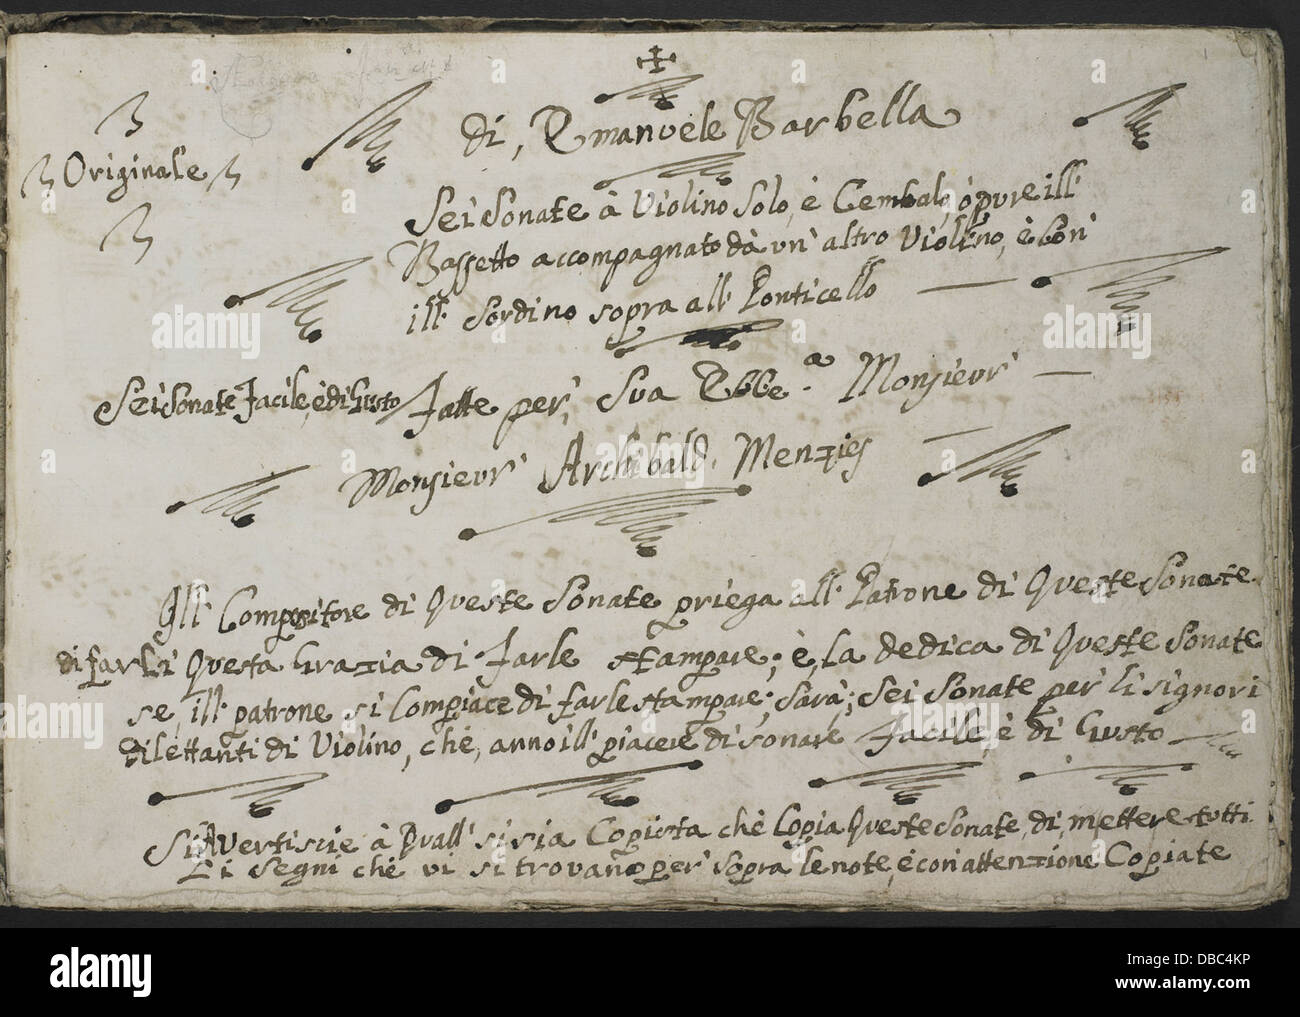 di, Emanuele Barbella
Originale
Sei Sonate à Violino Solo, è Cembalo, ò pure ill'
Bassetto accompagnato dà un' altro Violino, è con'
ill' Sordino sopra all' Ponticello
Sei Sonate Facile, è di Gusto
Fatte per, Sua Ecc.a Monsieur
Monsieur Archibald. Menzies
Ill' Compositore di Queste Sonate priega all' Patrone di Queste Sonate
di farli Questa Grazia di Farle stampare; è, la dedica di Queste Sonate
se, ill' patrone si Compiace di farle stampare; sarà; Sei Sonate per li signori
dilettanti di Violino, chè, anno ill' piacere di sonare Facile, è di Gusto
Si Avertiscie à Qvall' si sia Copista chè Copia Queste Sonate, di, mettere tutti
Li segni chè vi si trovano per sopra le note, è con attenzione Copiate
alamy
www.alamy.com
DBC4KP